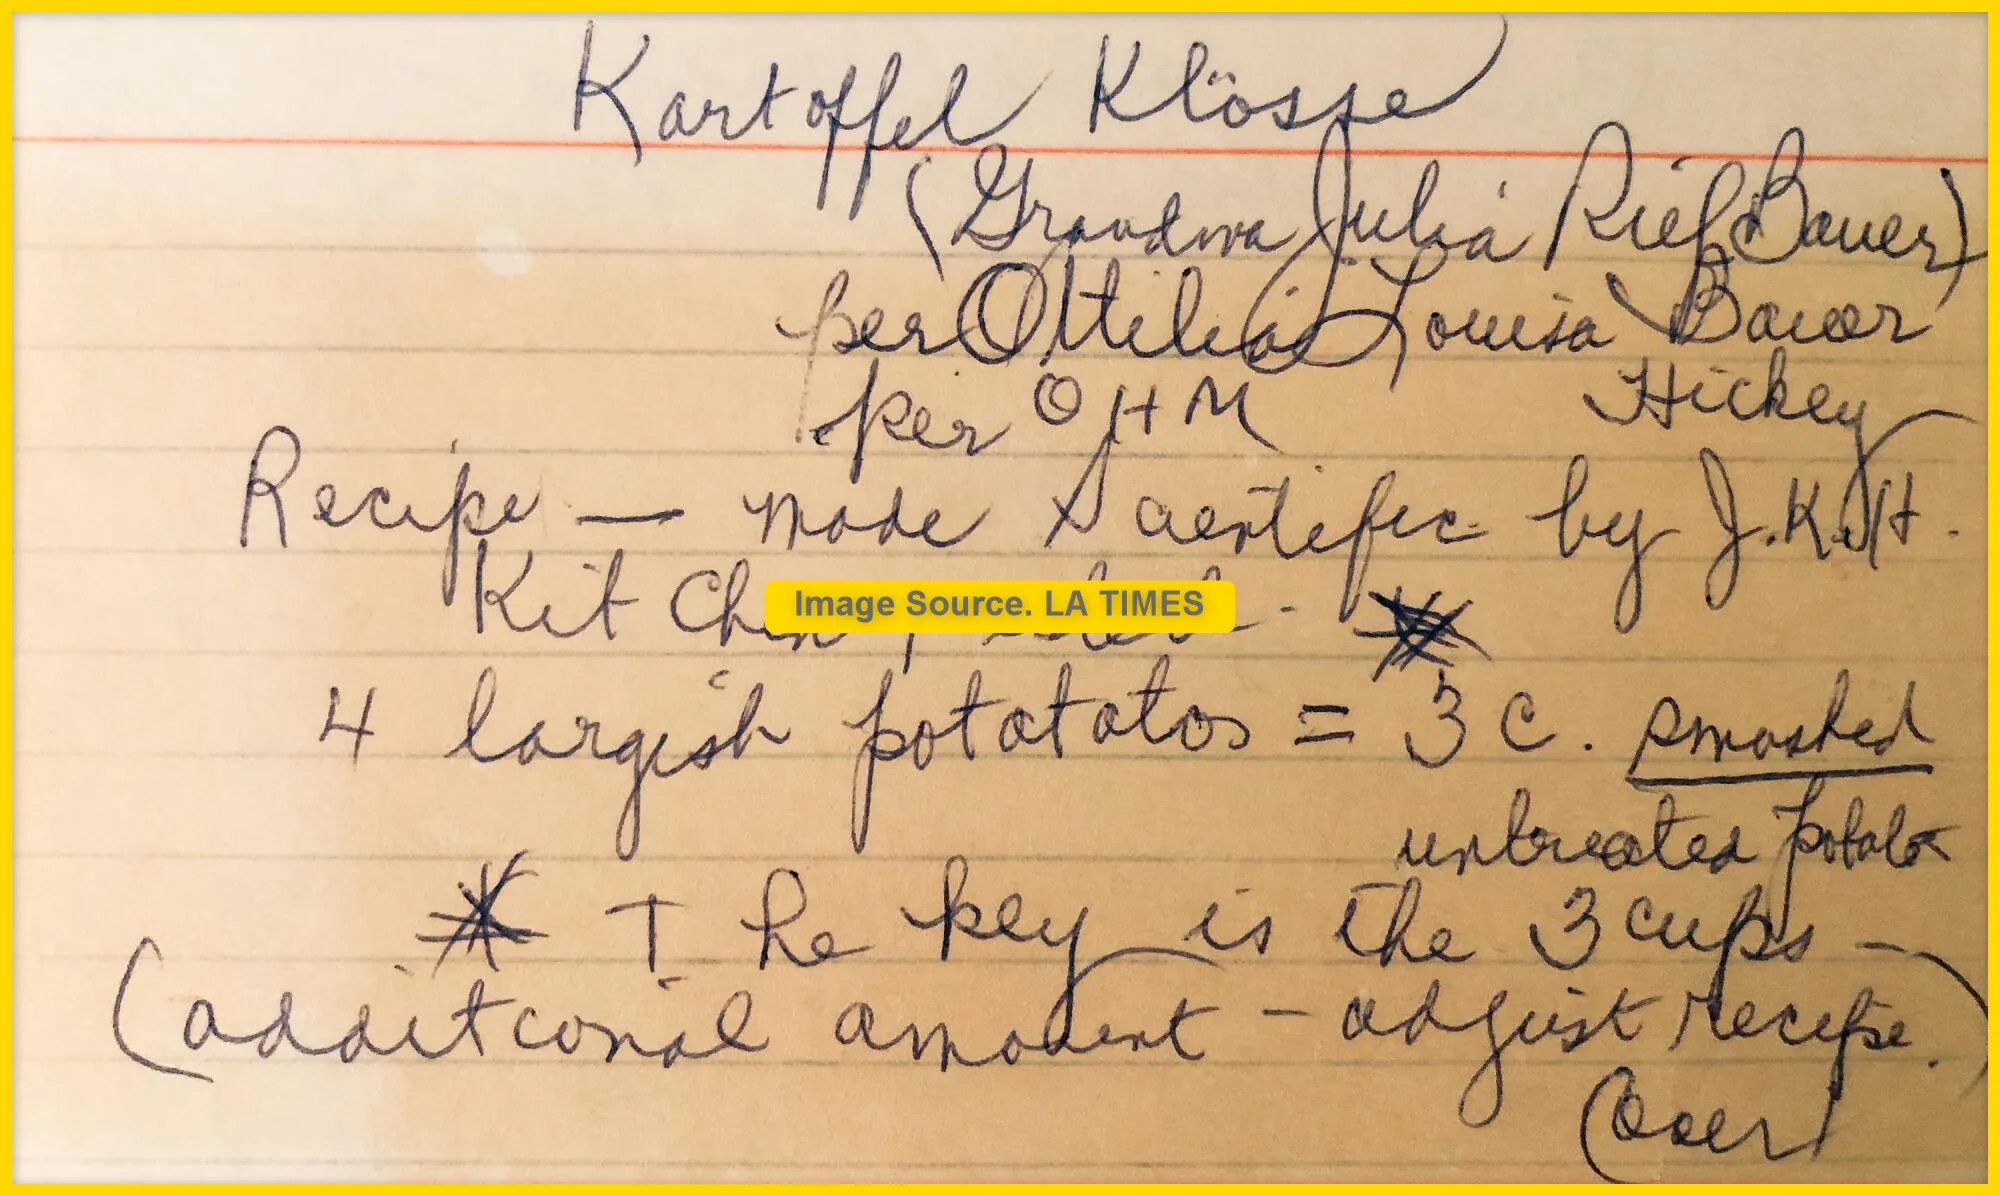 Kartoffel Klösse
(Grandma Julia Rieß Bauer)
per Ottilia Louisa Bauer
Hickey
per OHM
Recipe — made scientific by J.K.H.
Kitchen
Image Source. LA TIMES
4 largish potatatos = 3 c. smashed
untreated potato
* The key is the 3 cups –
(additional amount – adjust recipe.)
(over)